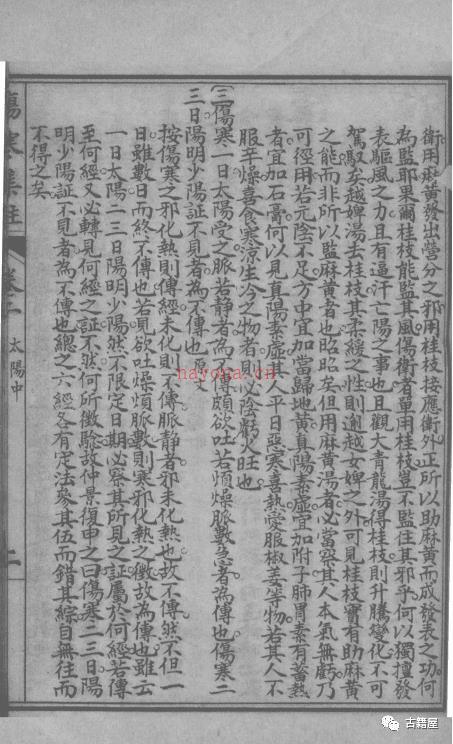 衛用麻黃發出營分之邪用桂枝接應衛外正所以助麻黃而成發表之功何
為監耶果爾桂枝能監其風傷衛者單用桂枝豈不監住其邪乎何以獨擅發
表驅風之力且有逼汗亡陽之事也且觀大青龍湯得桂枝則升騰變化不可
駕馭矣越婢湯去桂枝其柔緩之性則逾越女婢之外可見桂枝實有助麻黃
之能而非所以監麻黃者也昭昭矣但用麻黃湯者必當察其人本氣無虧乃
可徑用若元陰不足方中宜加當歸地黃真陽素虛宜加附子肺胃素有蓄熱
者宜加石膏何以見真陽素虛其人平日惡寒喜熱愛服椒姜等物若其人不
服辛燥喜食寒涼生冷之物者則必陰虧火旺也
〔三〕傷寒一日太陽受之脈若靜者為不傳頗欲吐若煩燥脈數急者為傳也傷寒二
三日陽明少陽証不見者為不傳也原文
按傷寒之邪化熱則傳經未化熱則不傳脈靜者邪未化熱也故不傳然不但一
日雖數日而終不傳也若見欲吐燥煩脈數則寒邪化熱之徵故為傳也雖云
一日太陽二三日陽明少陽然不限定日期必察其所見之証屬於何經若傳
至何經又必轉見何經之証不然何所徵驗故仲景復申之曰傷寒二三日陽
明少陽証不見者為不傳也總之六經各有定法參其伍而錯其綜自無往而
不得之矣
傷寒集註
卷二
太陽中
二
nayona.cn
古籍屋